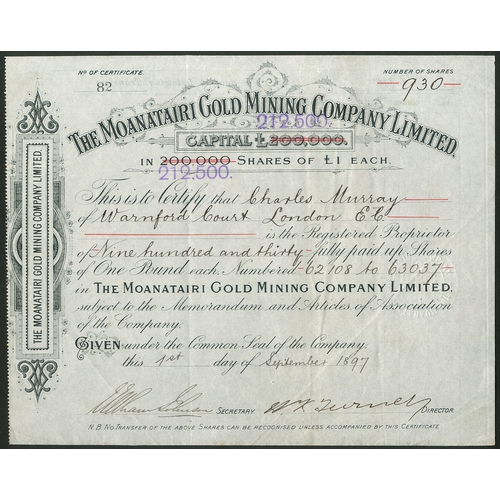 No OF CERTIFICATE.
82
NUMBER OF SHARES
930
THE MOANATAIRI GOLD MINING COMPANY LIMITED.
212.500.
CAPITAL £200,000.
IN 200,000 SHARES OF £1 EACH.
212.500.
This is to Certify that Charles Murray
of Warnford Court London E.C.
is the Registered Proprietor
of Nine hundred and thirty fully paid up Shares
of One Pound each, Numbered 62108 to 63037
in THE MOANATAIRI GOLD MINING COMPANY LIMITED,
subject to the Memorandum and Articles of Association
of the Company.
GIVEN under the Common Seal of the Company.
this 1st day of September 1897
SECRETARY
DIRECTOR
N.B. NO TRANSFER OF THE ABOVE SHARES CAN BE RECOGNISED UNLESS ACCOMPANIED BY THIS CERTIFICATE
THE MOANATAIRI GOLD MINING COMPANY LIMITED.